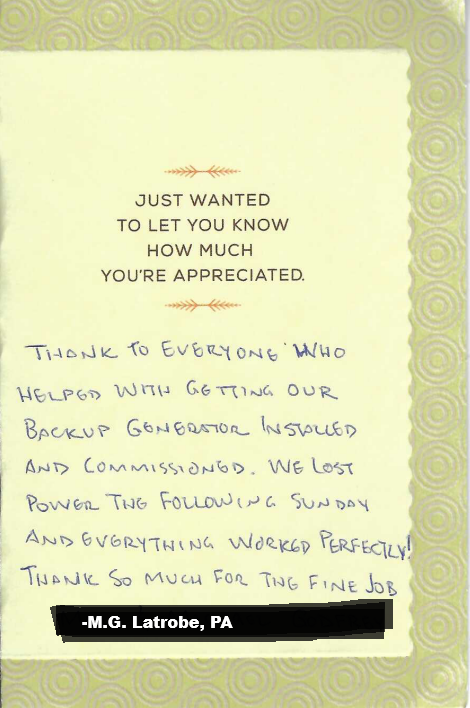 JUST WANTED
TO LET YOU KNOW
HOW MUCH
YOU'RE APPRECIATED.
THANK TO EVERYONE WHO
HELPED WITH GETTING OUR
BACKUP GENERATOR INSTALLED
AND COMMISSIONED. WE LOST
POWER THE FOLLOWING SUNDAY
AND EVERYTHING WORKED PERFECTLY!
THANK SO MUCH FOR THE FINE JOB
-M.G. Latrobe, PA